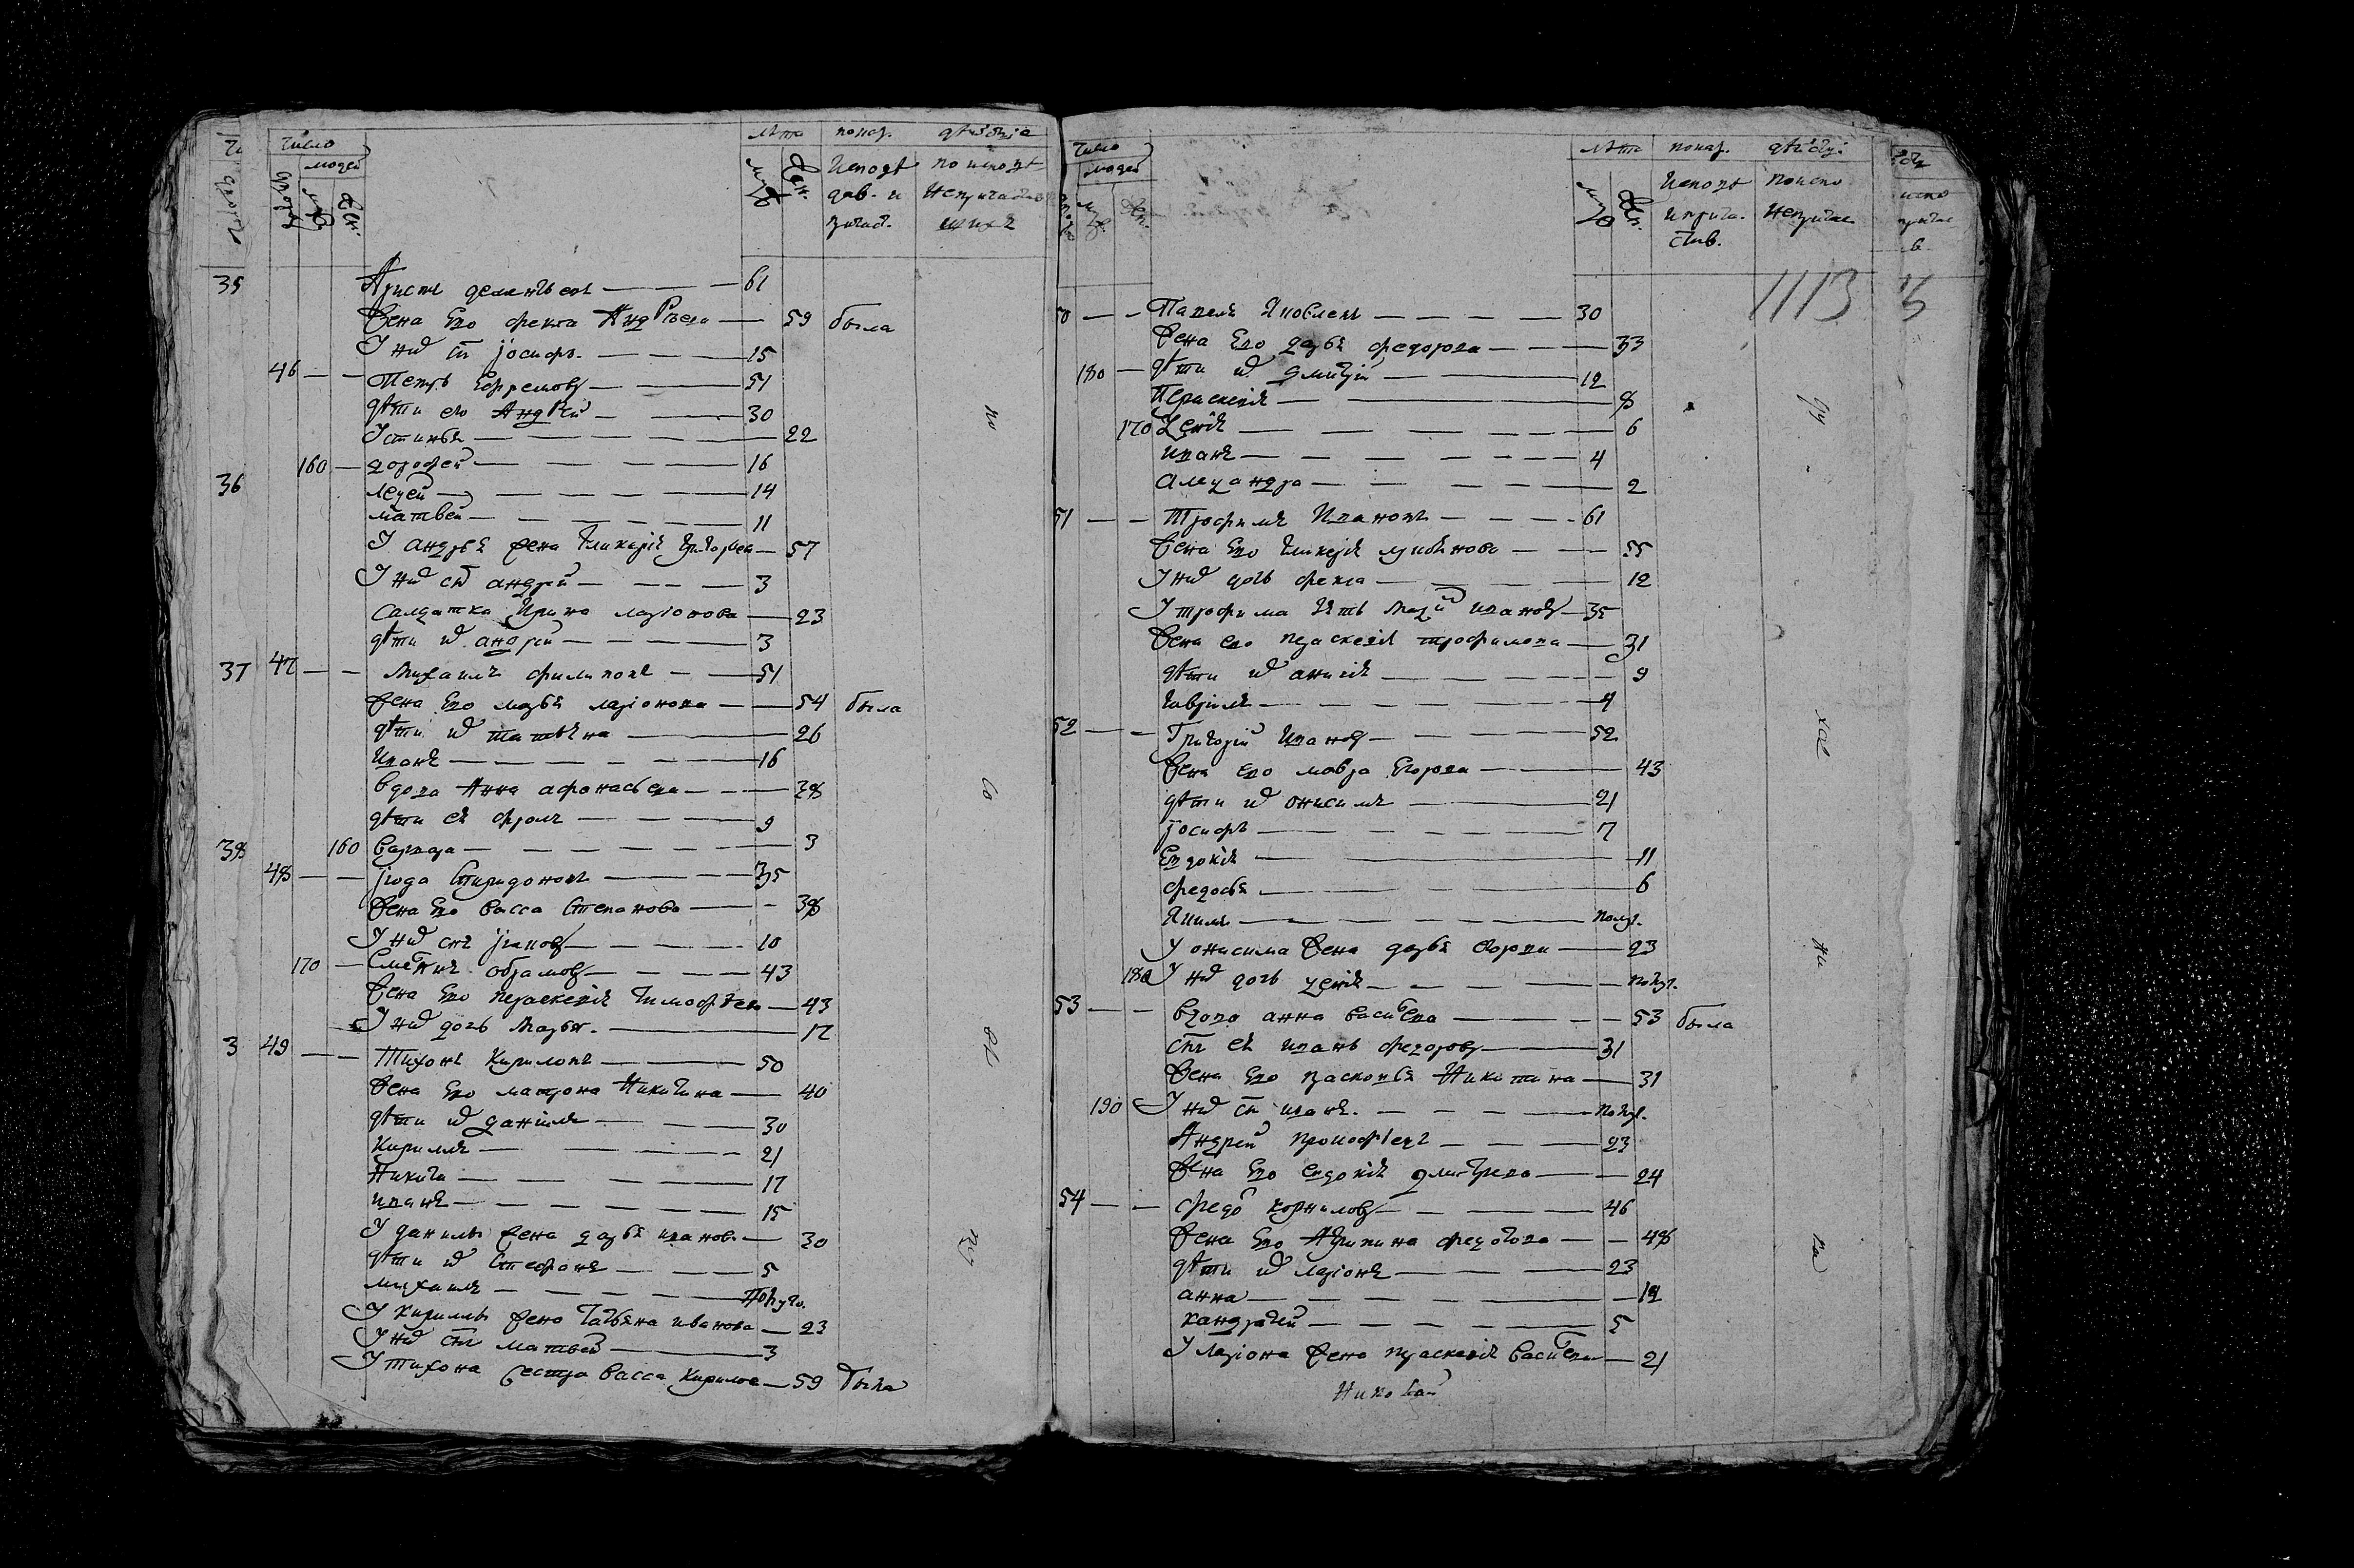 Число
людей
лѣта показ. дѣйствія
муж жен.
Исповѣ дав. и причас.
по исповѣ непричастив шихъ
35 Аристъ дементьевъ — 61
Жена Ево фекла Андреева — 59 была
У нихъ снъ іосифъ — 15
46 — Петръ Ефремовъ — 51
дѣти его Андрей — 30
Устинья — 22
160 — дорофей — 16
36
матвей — 11
У андрея жена Гликерія Григорьева — 57
У нихъ снъ андрей — 3
Салдатка Ирина ларіонова — 23
дѣти их андрей — 3
37 47 — Михаилъ филиповъ — 51
Жена Ево марья ларіонова — 54 была
дѣти их татьяна — 26
Иванъ — 16
вдова Анна афонасьева — 38
дѣти ея фролъ — 9
38 160 варвара — 3
48 — іюда Спиридоновъ — 35
Жена Ево васса Степанова — 38
У нихъ снъ — 10
170 — абрамовъ — 43
Жена Ево параскевія Тимофѣева — 43
У нихъ дочь Марья — 17
3 49 — Тихонъ Кириловъ — 50
Жена Ево матрона Никитина — 40
дѣти их даніилъ — 30
Кирилъ — 21
Никита — 17
иванъ — 15
У данилы жена дарья иванова — 30
дѣти их Стефанъ — 5
михаилъ — Полуго.
У кирилы жена Татьяна иванова — 23
У нихъ снъ матвей — 3
У тихона сестра васса Кирилова — 59 была
Число
людей
лѣта показ. дѣйству:
муж жен.
Исповѣ и прича. стив.
По испо неприча
1113
50 — Павелъ Яковлевъ — 30
Жена Ево дарья федорова — 33
180 — дѣти их дмитрій — 12
Параскевія — 8
170 — 6
иванъ — 4
александра — 2
51 — Трофимъ Ивановъ — 61
Жена Ево Гликерія — 55
У нихъ дочь фекла — 12
У трофима зять ивановъ — 35
Жена ево параскевія трофимова — 31
дѣти их — 9
гавріилъ — 4
52 — Григорій Ивановъ — 52
Жена ево мавра Егорова — 43
дѣти их онисимъ — 21
іосифъ — 7
Евдокія — 11
федосья — 6
Якимъ — полуг.
У онисима жена дарья — 23
180 У нихъ дочь — полуг.
53 — Вдова анна васильева — 53 была
Снъ ея иванъ федоровъ — 31
Жена Ево прасковья Никитина — 31
190 У нихъ снъ иванъ — полуг.
Андрей прокофьевъ — 23
Жена Ево евдокія дмитрева — 24
54 — федоръ корниловъ — 46
Жена Ево Акулина федотова — 48
дѣти их ларіонъ — 23
анна — 12
кандратей — 5
У ларіона жена праскевія васильева — 21
Николай